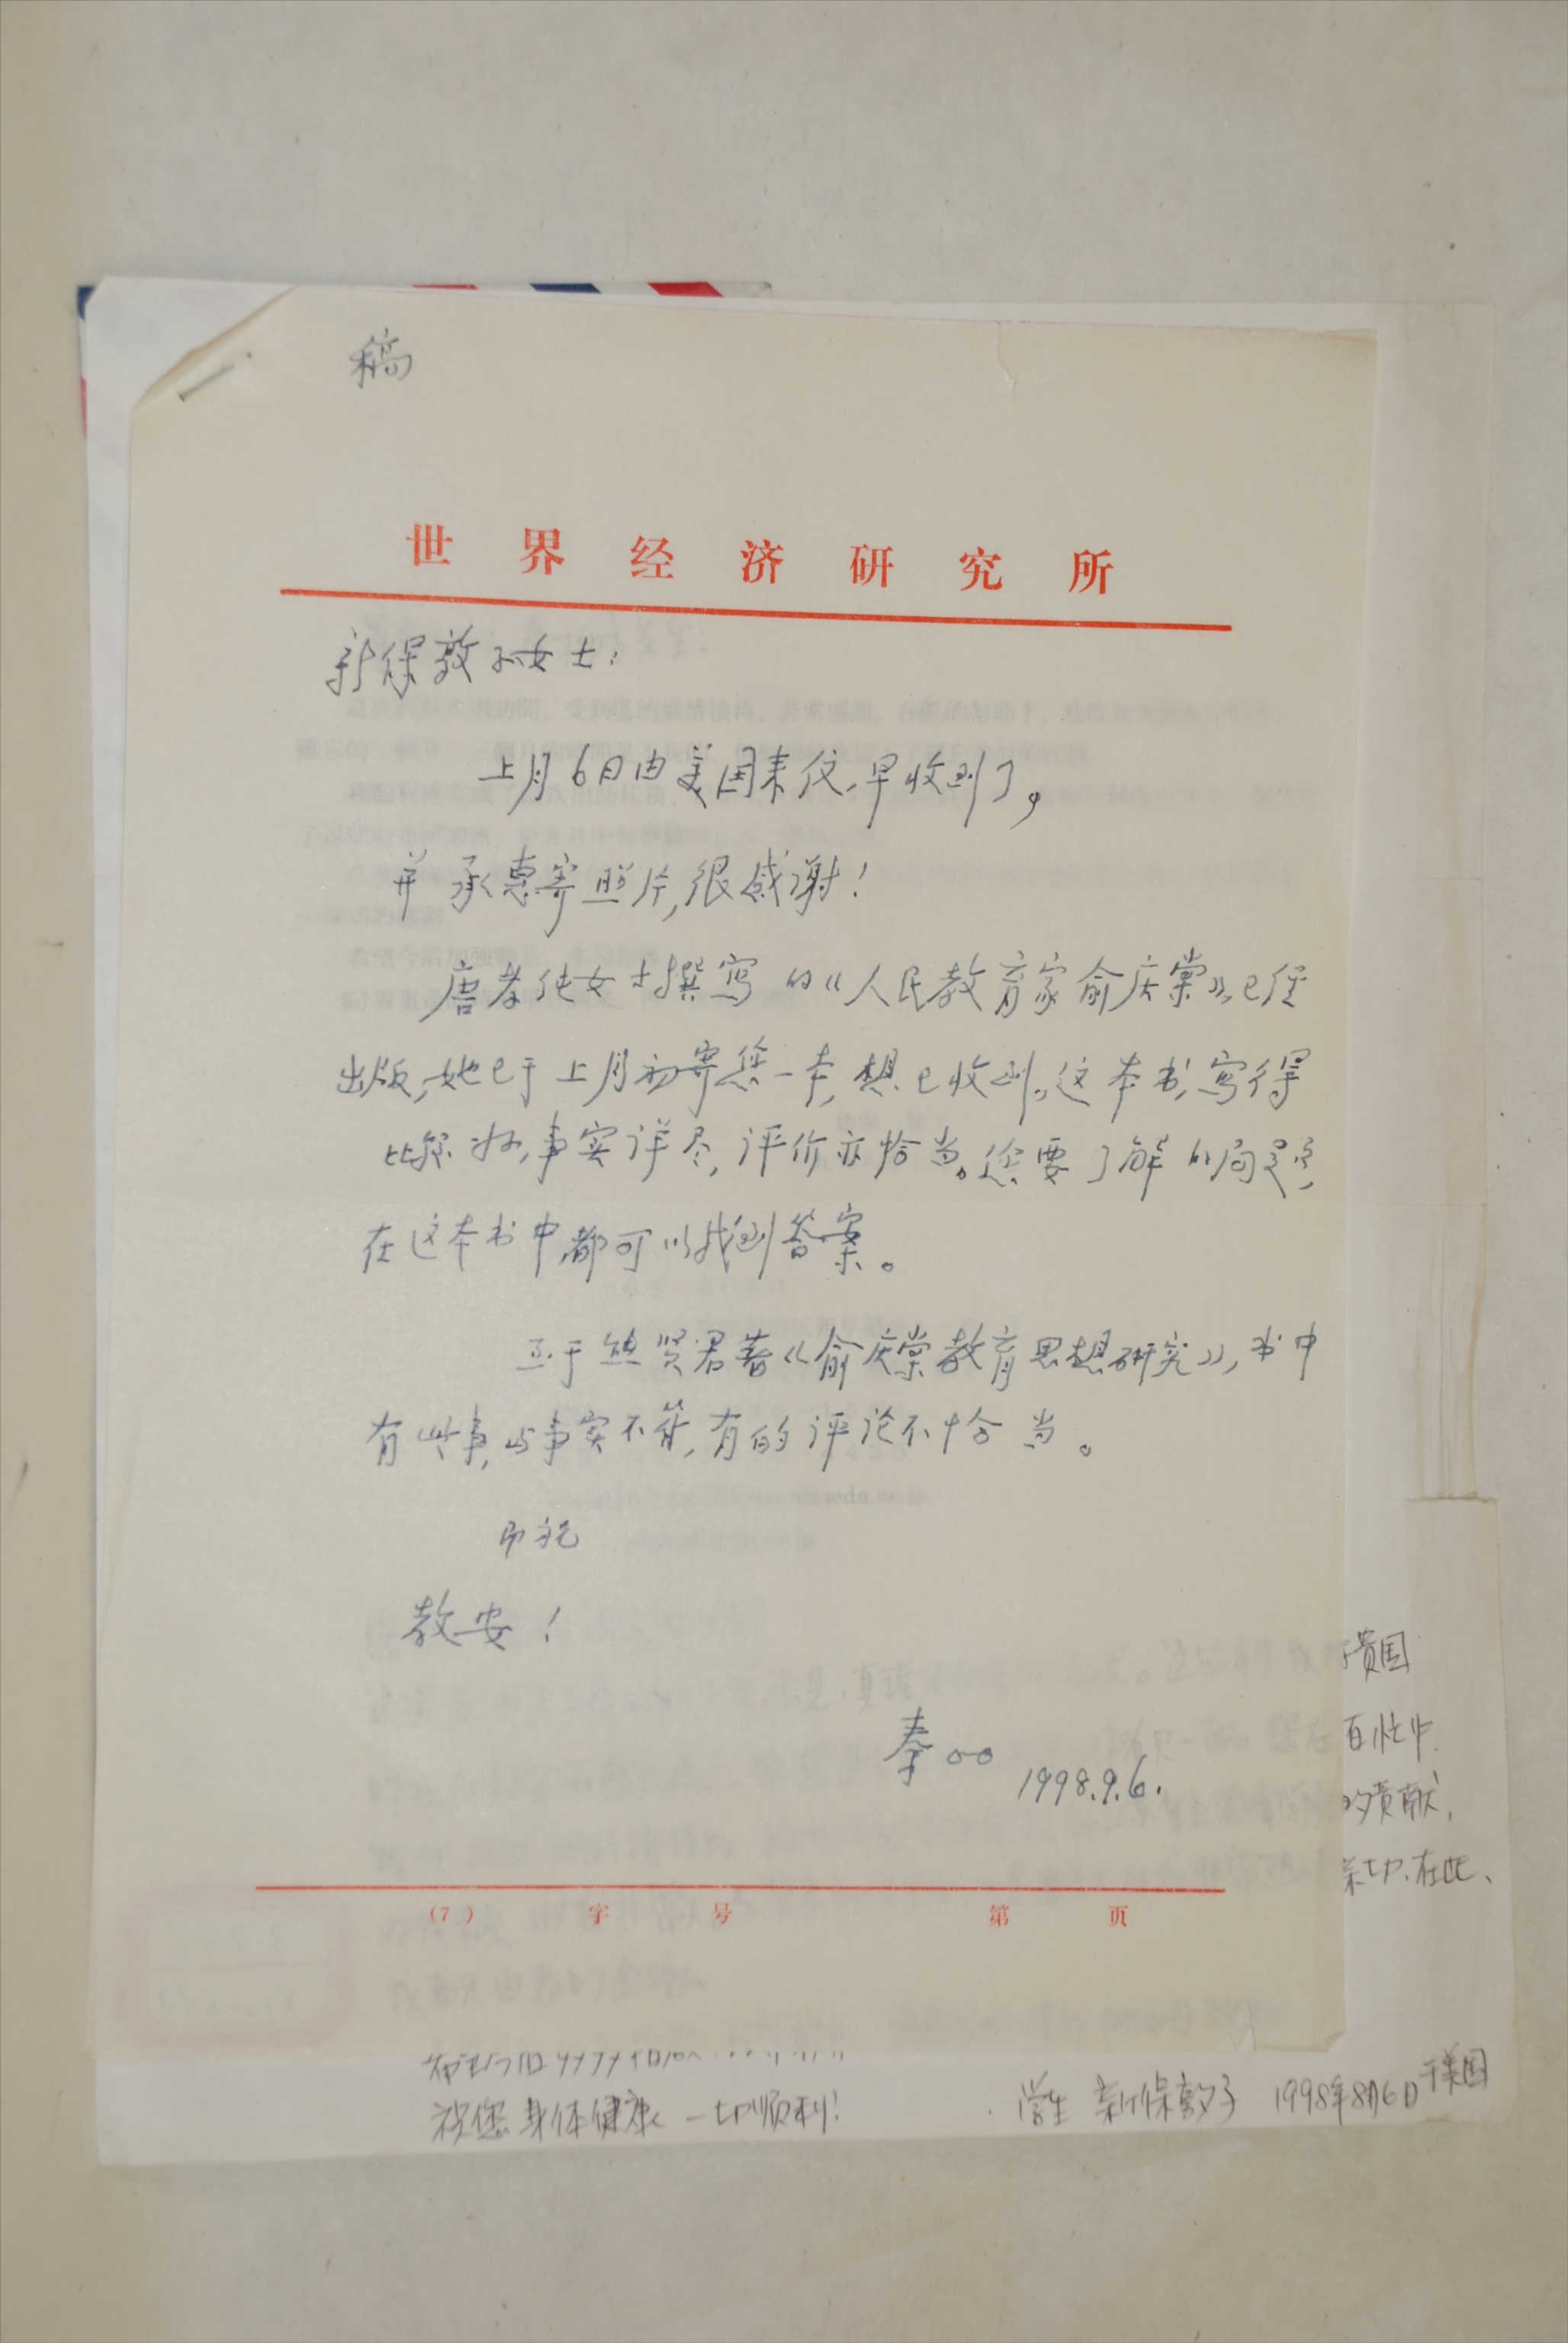 稿
世界经济研究所
新保敦子女士：
上月6日由美国来信，早收到了，
并承惠寄照片，很感谢！
唐孝纯女士撰写的《人民教育家俞庆棠》，已经
出版，她已于上月初寄您一本，想已收到。这本书，写得
比较好，事实详尽，评价亦恰当。您要了解的问题，
在这本书中，都可以找到答案。
至于熊贤君著《俞庆棠教育思想研究》，书中
有些事，与事实不符，有的评论不恰当。
即祝
教安！
秦○○ 1998.9.6.
（7） 字 号 第 页
贵国
百忙中
的贡献，
亲切.在此、
祝您身体健康 一切顺利！
学生 新保敦子 1998年8月6日于美国